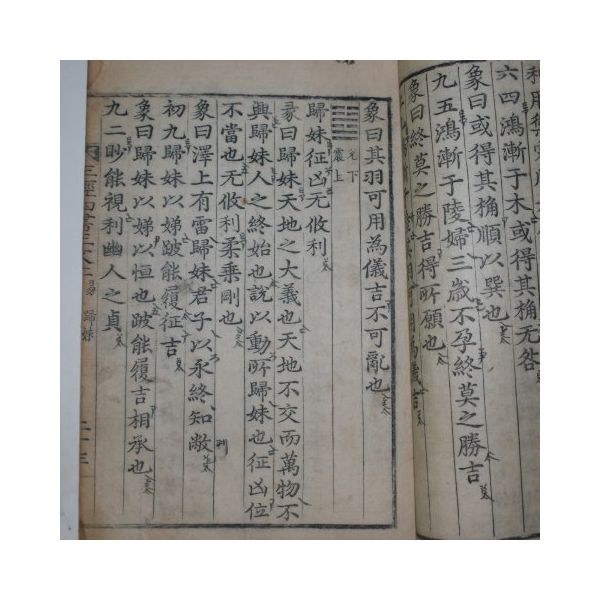 利用禦寇
六四鴻漸于木或得其桷无咎
象曰或得其桷順以巽也
九五鴻漸于陵婦三歲不孕終莫之勝吉
象曰終莫之勝吉得所願也
用為儀吉
象曰其羽可用為儀吉不可亂也
兌下
震上
歸妹征凶无攸利
彖曰歸妹天地之大義也天地不交而萬物不
興歸妹人之終始也說以動所歸妹也征凶位
不當也无攸利柔乘剛也
象曰澤上有雷歸妹君子以永終知敝
初九歸妹以娣跛能履征吉
象曰歸妹以娣以恒也跛能履吉相承也
九二眇能視利幽人之貞
三經四書正文二 易 歸妹